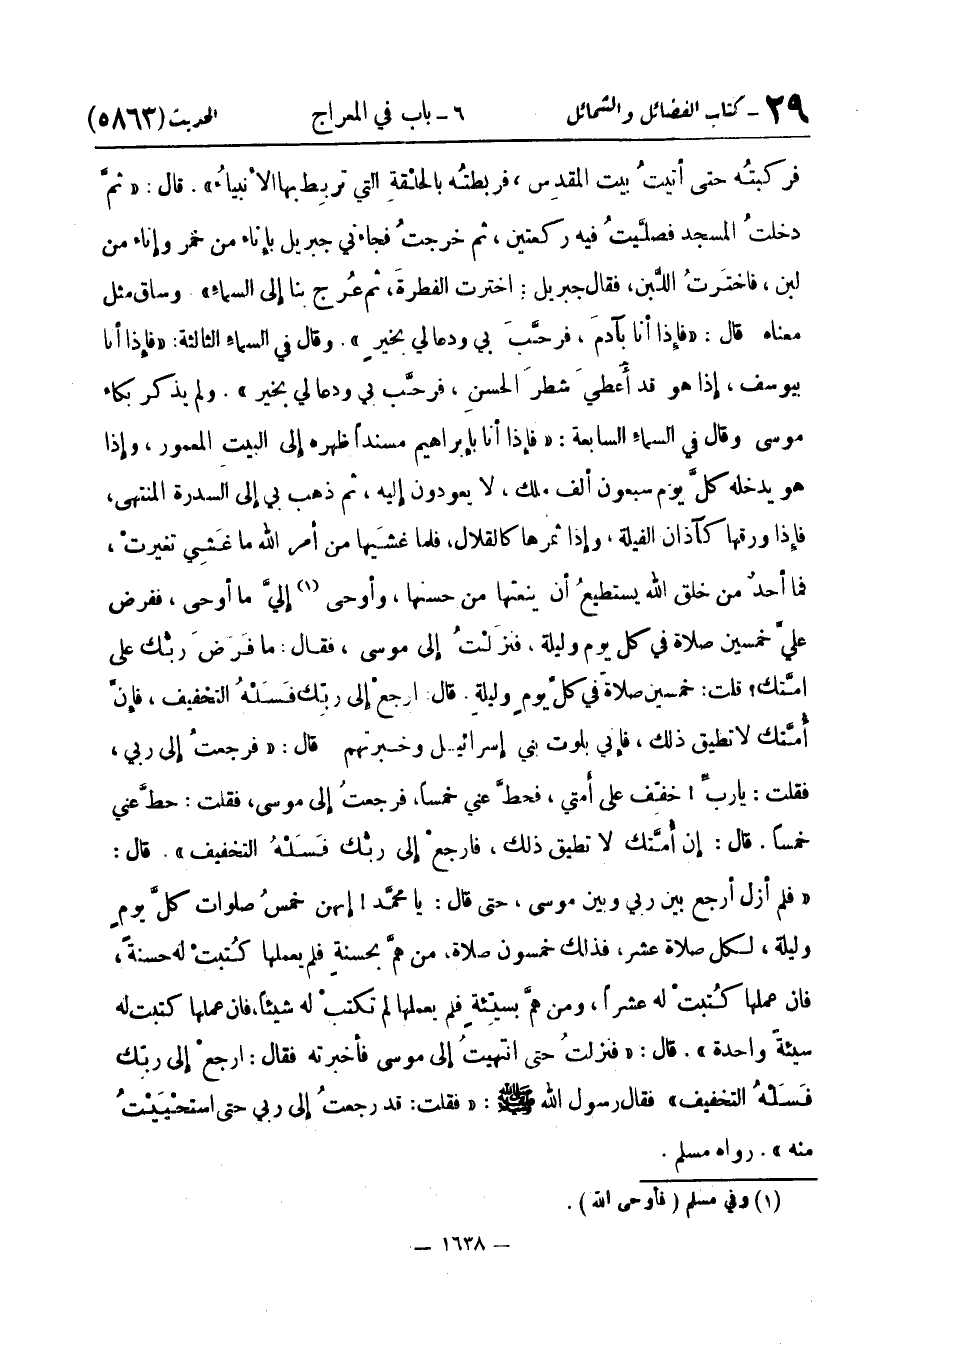 ٢٩ - كتاب الفضائل والشمائل ٦ - باب في المعراج الحديث (٥٨٦٣)
فركبتُه حتى أتيتُ بيت المقدسِ، فربطتُه بالحلْقةِ التي تربِط بها الأنبياءُ». قال: «ثمَّ
دخلتُ المسجد فصلَّيتُ فيه ركعتين، ثم خرجتُ فجاءني جبريل بإناءٍ من خمر وإناء من
لبن، فاختَرتُ اللَّبن، فقال جبريل: اخترت الفطرةَ، ثم عُرج بنا إلى السماء». وساق مثل
معناه قال: «فإذا أنا بآدمَ، فرحَّبَ بي ودعا لي بخيرٍ». وقال في السماء الثالثة: «فإذا أنا
بيوسف، إذا هو قد أُعطيَ شطرَ الحسنِ، فرحَّب بي ودعا لي بخير». ولم يذكر بكاء
موسى وقال في السماء السابعة: «فإذا أنا بإبراهيم مسنداً ظهره إلى البيتِ المعمور، وإذا
هو يدخله كلَّ يوم سبعون ألف ملك، لا يعودون إليه، ثم ذهب بي إلى السدرة المنتهى،
فإذا ورقها كآذان الفيلة، وإذا ثمرها كالقلال، فلما غشيَها من أمر الله ما غَشِي تغيرتْ،
فما أحدٌ من خلق الله يستطيعُ أن ينعتها من حسنها، وأوحى (١) إليَّ ما أوحى، ففرض
عليَّ خمسين صلاة في كل يوم وليلة، فنزَلْتُ إلى موسى، فقال: ما فَرَضَ ربُّك على
امَّتك؟ قلت: خمسين صلاةً في كلِّ يومٍ وليلةٍ. قال: ارجعْ إلى ربِّك فَسَلْهُ التخفيف، فإنَّ
أُمَّتك لا تطيق ذلك، فإني بلوت بني إسرائيل وخبرتهم قال: «فرجعتُ إلى ربي،
فقلت: يا ربِّ! خفِّف على أُمتي، فحطَّ عني خمساً، فرجعتُ إلى موسى، فقلت: حطَّ عني
خمساً. قال: إن أُمَّتك لا تطيق ذلك، فارجعْ إلى ربِّك فَسَلْهُ التخفيف». قال:
«فلم أزل أرجع بين ربي وبين موسى، حتى قال: يا محمَّد! إنهن خمسُ صلوات كلَّ يومٍ
وليلة، لكل صلاة عشر، فذلك خمسون صلاة، من همَّ بحسنةٍ فلم يعملها كُتبتْ له حسنةً،
فان عملها كُتبتْ له عشراً، ومن همَّ بسيِّئةٍ فلم يعملها لم تكتبْ له شيئاً، فان عملها كتبت له
سيئةً واحدة». قال: «فنزلتُ حتى انتهيتُ إلى موسى فأخبرته فقال: ارجعْ إلى ربِّك
فَسَلْهُ التخفيف» فقال رسول الله ﷺ: «فقلت: قد رجعتُ إلى ربي حتى استحْيَيْتُ
منه». رواه مسلم.
(١) وفي مسلم (فأوحى الله).
— ١٦٣٨ —